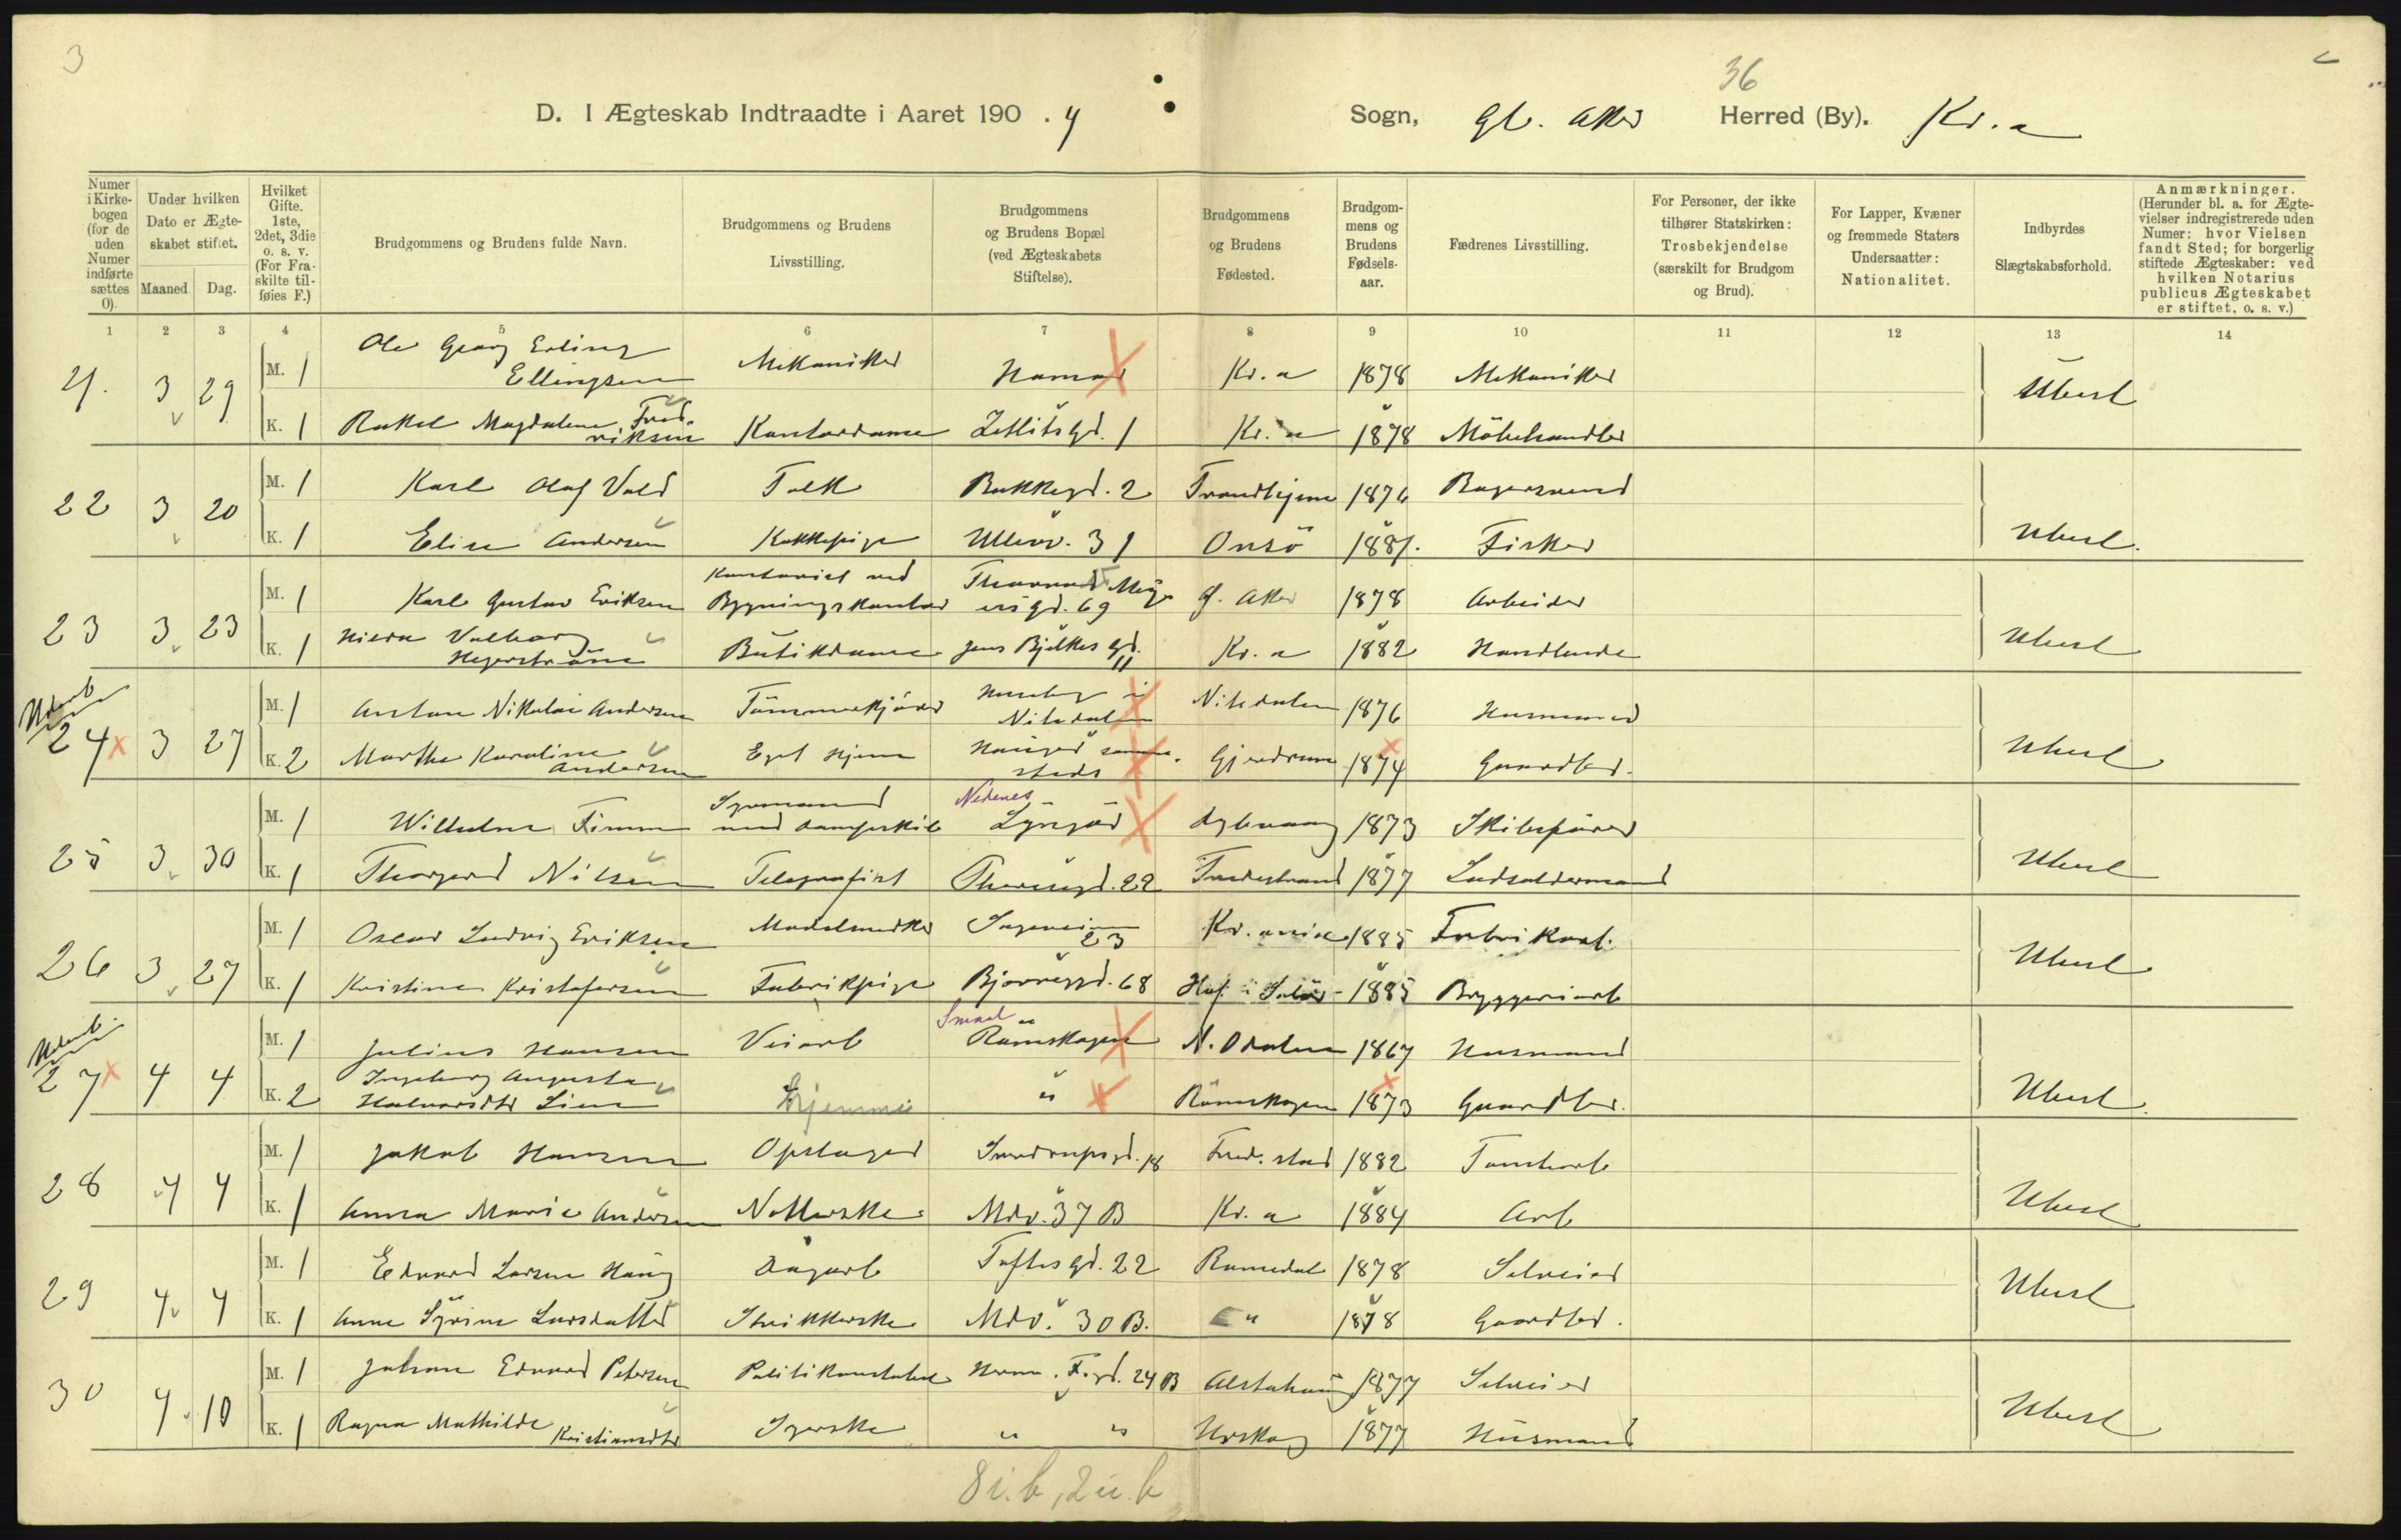 3
36
D. I Ægteskab Indtraadte i Aaret 190 . 4 Sogn, Gl. Aker Herred (By). Kr.a
Numer i Kirkebogen (for de uden Numer indførte sættes 0).
Under hvilken Dato er Ægteskabet stiftet.
Maaned. Dag.
Hvilket Gifte. 1ste, 2det, 3die o. s. v. (For Fraskilte tilføies F.)
Brudgommens og Brudens fulde Navn.
Brudgommens og Brudens Livsstilling.
Brudgommens og Brudens Bopæl (ved Ægteskabets Stiftelse).
Brudgommens og Brudens Fødested.
Brudgommens og Brudens Fødselsaar.
Fædrenes Livsstilling.
For Personer, der ikke tilhører Statskirken: Trosbekjendelse (særskilt for Brudgom og Brud).
For Lapper, Kvæner og fremmede Staters Undersaatter: Nationalitet.
Indbyrdes Slægtskabsforhold.
Anmærkninger. (Herunder bl. a. for Ægtevielser indregistrerede uden Numer: hvor Vielsen fandt Sted; for borgerlig stiftede Ægteskaber: ved hvilken Notarius publicus Ægteskabet er stiftet, o. s. v.)
1 2 3 4 5 6 7 8 9 10 11 12 13 14
21. 3 29 M. 1 Ole Georg Erling Ellingsen Mekaniker Hamar Kr.a 1878 Mekaniker Ubesl
K. 1 Rakel Magdalene Fredriksen Kontordame Zetlitsgd. 1 Kr.a 1878 Möbelhandler
22 3 20 M. 1 Karl Olaf Vold Tolk Bakkegd. 2 Trondhjem 1876 Bagersvend
K. 1 Elise Andersen Kokkepige Ullevv. 31 Onsö 1881. Fisker Ubesl.
23 3 23 M. 1 Karl Gustav Eriksen Kontorist ved Bygningskontor Thorvald Meyersgd. 69 G. Aker 1878 Arbeider
K. 1 Valborg Butikdame Jens Bjelkes gd. 11 Kr.a 1882 Handlende Ubesl
24 3 27 M. 1 Anton Nikolai Andersen Tömmerkjörer i Nitedalen Nitedalen 1876 Husmand
K. 2 Marthe Karoline Andersen Eget Hjem sammesteds Gjerdrum 1874 Gaardbr. Ubesl
25 3 30 M. 1 Wilhelm Timm Styrmand med dampskib Nedenes Lyngör Dybvaag 1873 Skibsförer
K. 1 Thorgerd Nilsen Telegrafist Theresesgd. 22 Fredrikstad 1877 Lodsoldermand Ubesl
26 3 27 M. 1 Oscar Ludvig Eriksen Modelsnedker Sageveien 23 Kr.ania 1885 Fabrikarb.
K. 1 Kristine Kristofersen Fabrikpige Bjerregd. 68 Hof i Solör 1885 Bryggeriarb Ubesl
27 4 4 M. 1 Julius Hansen Veiarb Smaal Römskogen N. Odalen 1867 Husmand
K. 2 Ingeborg Augusta Halvorsdtr Lien Hjemme " Römskogen 1873 Gaardbr. Ubesl.
28 4 4 M. 1 Jakob Hansen Opslager Smedrupsgd. 18 Fred.stad 1882 Tomtearb
K. 1 Anna Marie Andersen Notterske Mdv. 37 B Kr.a 1884 Arb Ubesl
29 4 4 M. 1 Edvard Larsen Haug Dagarb Toftesgd. 22 Romsdal 1878 Selveier
K. 1 Anne Syrine Larsdatter Strikkerske Mdv. 30 B. " 1878 Gaardbr. Ubesl
30 4 10 M. 1 Johan Edvard Petersen Politikonstabel Herm. F.gd. 24 B Alstahaug 1877 Selveier
K. 1 Ragna Mathilde Kristiansdtr Syerske " " Urskog 1877 Husmand Ubesl
8 i.b, 2 u.b